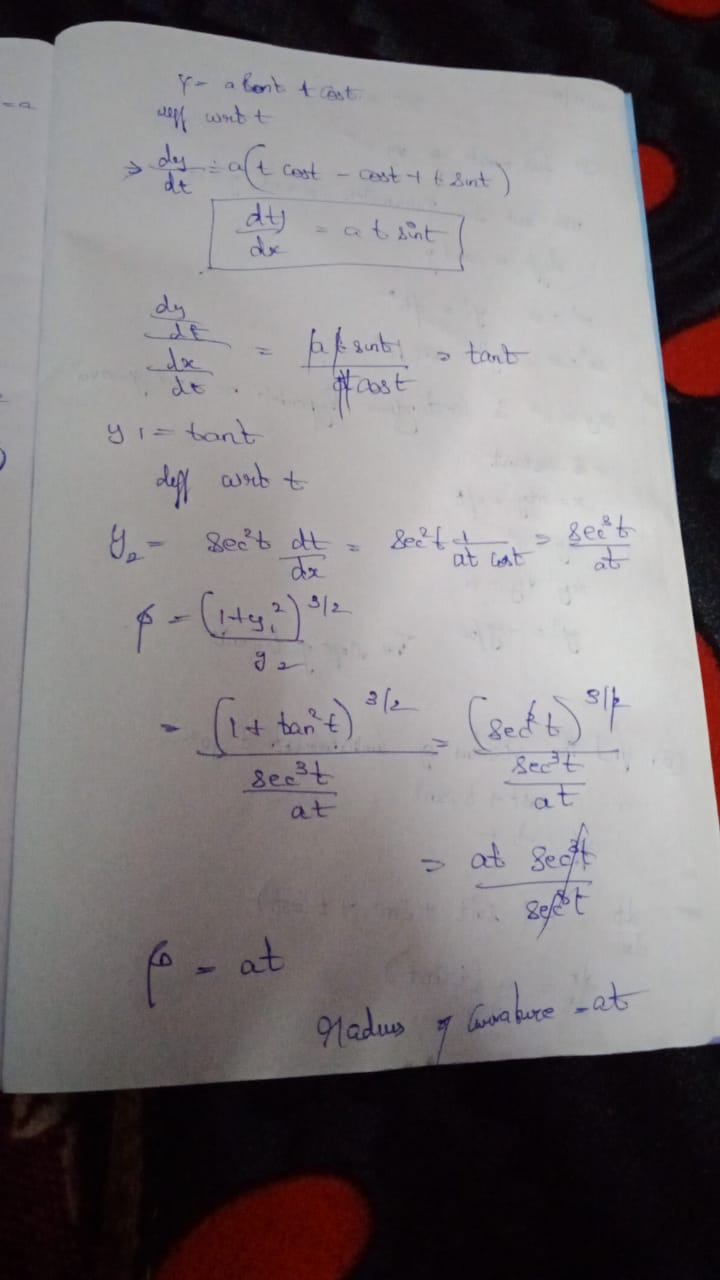 = a
y = a sint t cost
diff wrt t
⇒ dy/dt = a(t cost - cost + t sint)
dty/dx = a t sint
(dy/dt)/(dx/dt) = a t sint/at cost = tant
y1 = tant
diff wrt t
y2 = sec²t dt/dx = sec²t 1/at cost = sec³t/at
ρ = (1+y1²)^3/2 / y2
= (1 + tan²t)^3/2 / (sec³t/at) = (sec²t)^3/2 / (sec³t/at)
= at sec³t / sec³t
ρ = at
Radius of Curvature = at